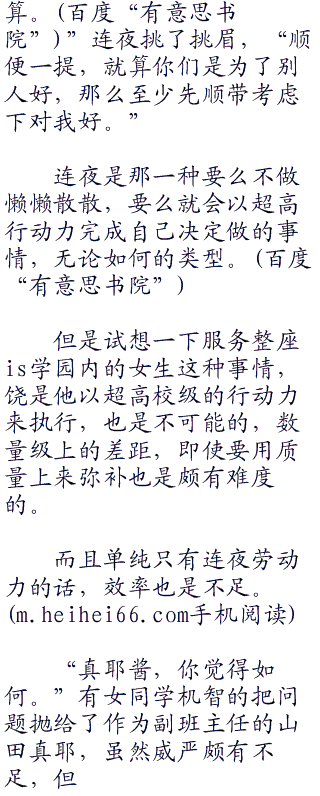 算。(百度“有意思书
院”)”连夜挑了挑眉，“顺
便一提，就算你们是为了别
人好，那么至少先顺带考虑
下对我好。”
连夜是那一种要么不做
懒懒散散，要么就会以超高
行动力完成自己决定做的事
情，无论如何的类型。(百度
“有意思书院”)
但是试想一下服务整座
is学园内的女生这种事情，
饶是他以超高校级的行动力
来执行，也是不可能的，数
量级上的差距，即使要用质
量上来弥补也是颇有难度
的。
而且单纯只有连夜劳动
力的话，效率也是不足。
(m.heihei66.com手机阅读)
“真耶酱，你觉得如
何。”有女同学机智的把问
题抛给了作为副班主任的山
田真耶，虽然威严颇有不
足，但